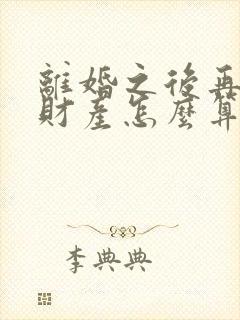 離婚之後再
財產怎麼算
李典典